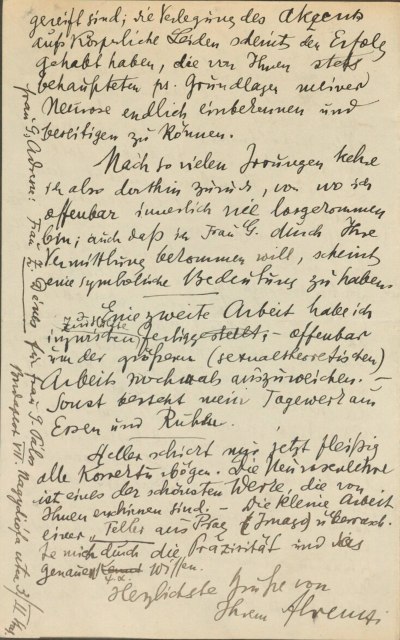 gereift sind; die Verlegung des Akzents
aufs körperliche Leiden scheint den Erfolg
gehabt haben, die von Ihnen stets
behaupteten ps. Grundlagen meiner
Neurose endlich einbekennen und
beseitigen zu können.
Nach so vielen Irrungen kehre
ich also dorthin zurück, von wo ich
offenbar innerlich nie losgekommen
bin; auch daß ich Frau G. durch Ihre
Vermittlung bekommen will, scheint
eine symbolische Bedeutung zu haben.
Eine zweite Arbeit habe ich
fertig; – offenbar
um der größeren (sexualtheoretischen)
Arbeit nochmals auszuweichen. –
Sonst besteht mein Tagewerk aus
Essen und Ruhen.
Heller schickt mir jetzt fleißig
alle Korrekturbögen. Die Neurosenlehre
ist eines der schönsten Werke, die von
Ihnen erschienen sind. – Die kleine Arbeit
einer „Teller aus Prag (Imago) überrasch-
te mich durch die Präzisität und das
genaue Wissen.
Herzlichste Grüße von
Ihrem Ferenczi
Frau G. Adresse: Frau
für Frau G.
Budapest VII. Nagydiófa utca 3/II